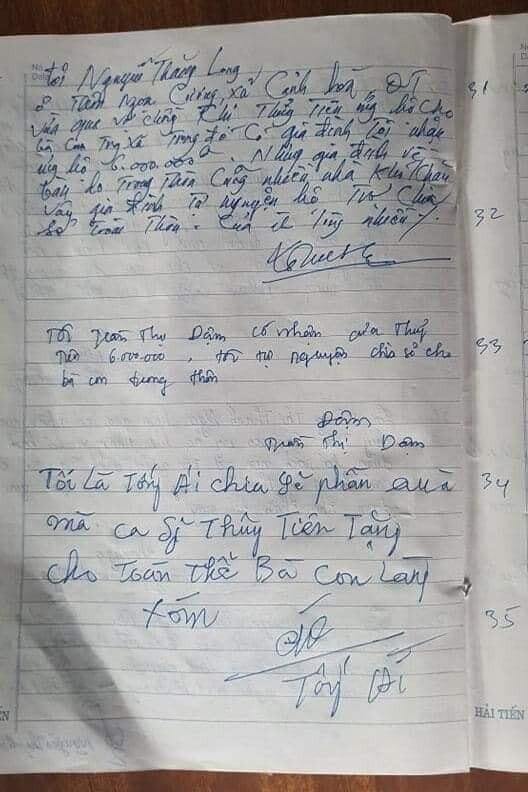 Tôi Nguyễn Thăng Long
ở Thôn Ngọa Cương, Xã Cảnh hoá QT
vừa qua vợ chồng Chị Thủy Tiên ủng hộ cho
bà Con Trong Xã Trong đó Có gia đình Tôi nhận
ủng hộ 6.000.000đ. Nhưng gia đình và
bàn ho Trong Thôn Cũng nhiều nha khó khăn
Vậy gia đình Tự nguyện hộ Trợ Chia
sẻ Trong Thôn: Của ít lòng nhiều
31
32
Tôi Trần Thị Dậm có nhận của Thuỷ
Tiên 6.000.000, tôi tự nguyện chia sẻ cho
bà con trong thôn
33
Dậm
Trần Thị Dậm
Tôi Là Tống Ái chia sẻ phần quà
34
mà ca Sĩ Thủy Tiên Tặng
cho Toàn Thể Bà Con Làng
xóm
35
Tống Ái
HẢI TIẾN